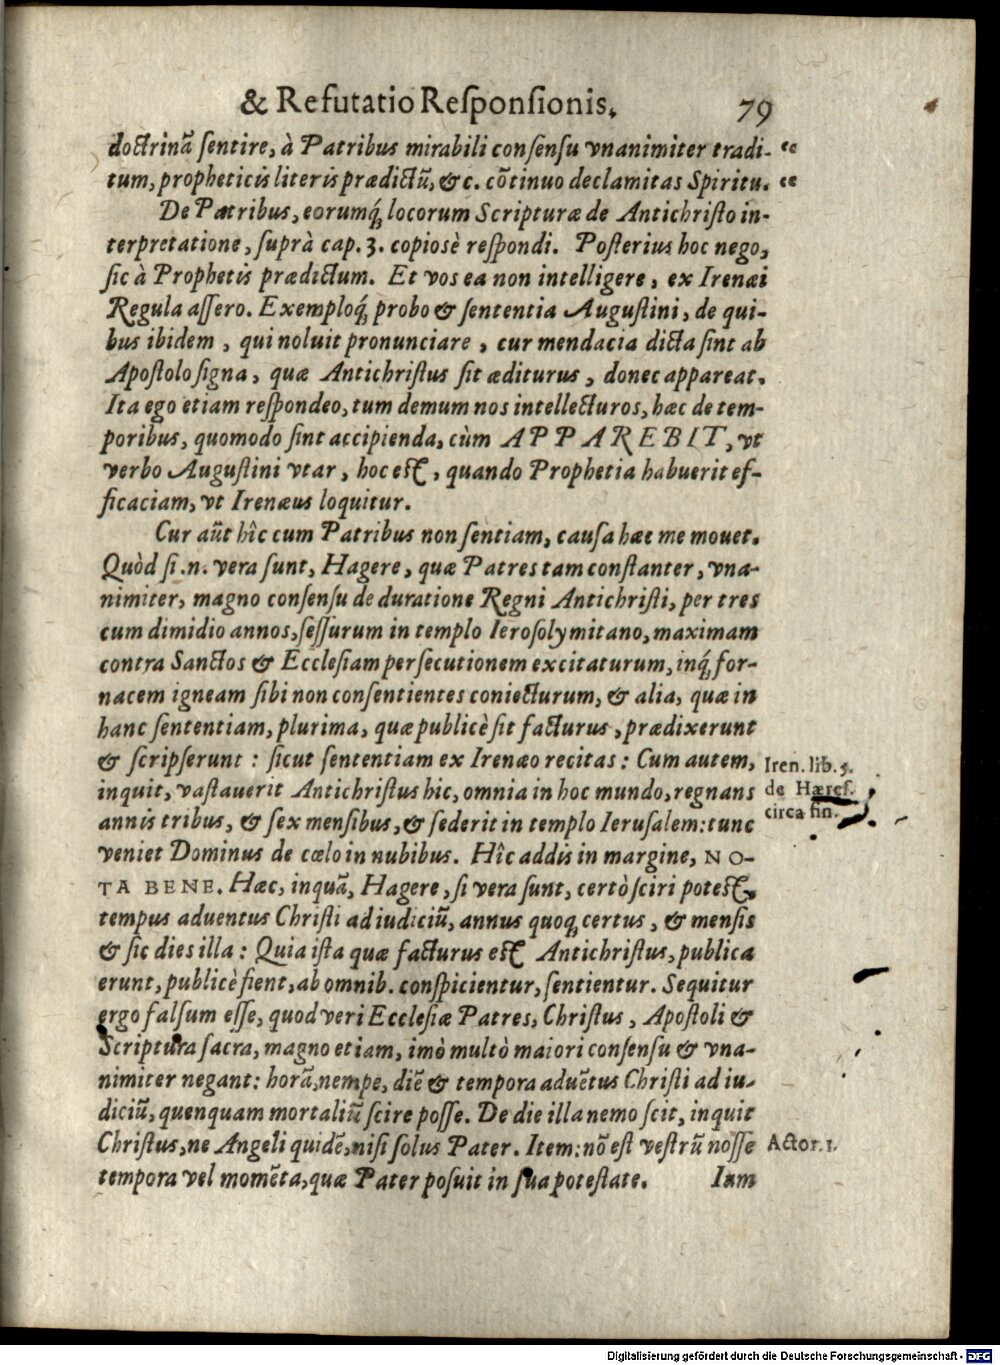 & Refutatio Reſponſionis. 79
doctrinā ſentire, à Patribus mirabili conſenſu vnanimiter tradi- “
tum, propheticis literis prædictū, &c. cōtinuo declamitas Spiritu. “
De Patribus, eorumq́; locorum Scripturæ de Antichriſto in-
terpretatione, ſuprà cap. 3. copiosè reſpondi. Poſterius hoc nego,
ſic à Prophetis prædictum. Et vos ea non intelligere, ex Irenæi
Regula aſſero. Exemploq́; probo & ſententia Auguſtini, de qui-
bus ibidem, qui noluit pronunciare, cur mendacia dicta ſint ab
Apoſtolo ſigna, quæ Antichriſtus ſit æditurus, donec appareat.
Ita ego etiam reſpondeo, tum demum nos intellecturos, hæc de tem-
poribus, quomodo ſint accipienda, cùm APPAREBIT, vt
verbo Auguſtini vtar, hoc eſt, quando Prophetia habuerit ef-
ficaciam, vt Irenæus loquitur.
Cur aūt hîc cum Patribus non ſentiam, cauſa hæc me mouet.
Quòd ſi .n. vera ſunt, Hagere, quæ Patres tam conſtanter, vna-
nimiter, magno conſenſu de duratione Regni Antichriſti, per tres
cum dimidio annos, ſeſſurum in templo Ieroſolymitano, maximam
contra Sanctos & Eccleſiam perſecutionem excitaturum, inq́; for-
nacem igneam ſibi non conſentientes coniecturum, & alia, quæ in
hanc ſententiam, plurima, quæ publicè ſit facturus, prædixerunt
& ſcripſerunt : ſicut ſententiam ex Irenæo recitas : Cum autem,
inquit, vaſtauerit Antichriſtus hic, omnia in hoc mundo, regnans
annis tribus, & ſex menſibus, & ſederit in templo Ieruſalem: tunc
veniet Dominus de cælo in nubibus. Hîc addis in margine, NO-
TA BENE. Hæc, inquā, Hagere, ſi vera ſunt, certò ſciri poteſt,
tempus aduentus Chriſti ad iudiciū, annus quoq; certus, & menſis
& ſic dies illa : Quia iſta quæ facturus eſt Antichriſtus, publica
erunt, publicè fient, ab omnib. conſpicientur, ſentientur. Sequitur
ergo falſum eſſe, quod veri Eccleſiæ Patres, Chriſtus, Apoſtoli &
Scriptura ſacra, magno etiam, imò multò maiori conſenſu & vna-
nimiter negant: horā, nempe, diē & tempora aduētus Chriſti ad iu-
diciū, quenquam mortaliū ſcire poſſe. De die illa nemo ſcit, inquit
Chriſtus, ne Angeli quidē, niſi ſolus Pater. Item: nō eſt veſtrū noſſe
tempora vel momēta, quæ Pater poſuit in ſua poteſtate. Iam
Iren. lib. 5.
de Hæreſ.
circa fin.
Actor. 1.
Digitalisierung gefördert durch die Deutsche Forschungsgemeinschaft - DFG